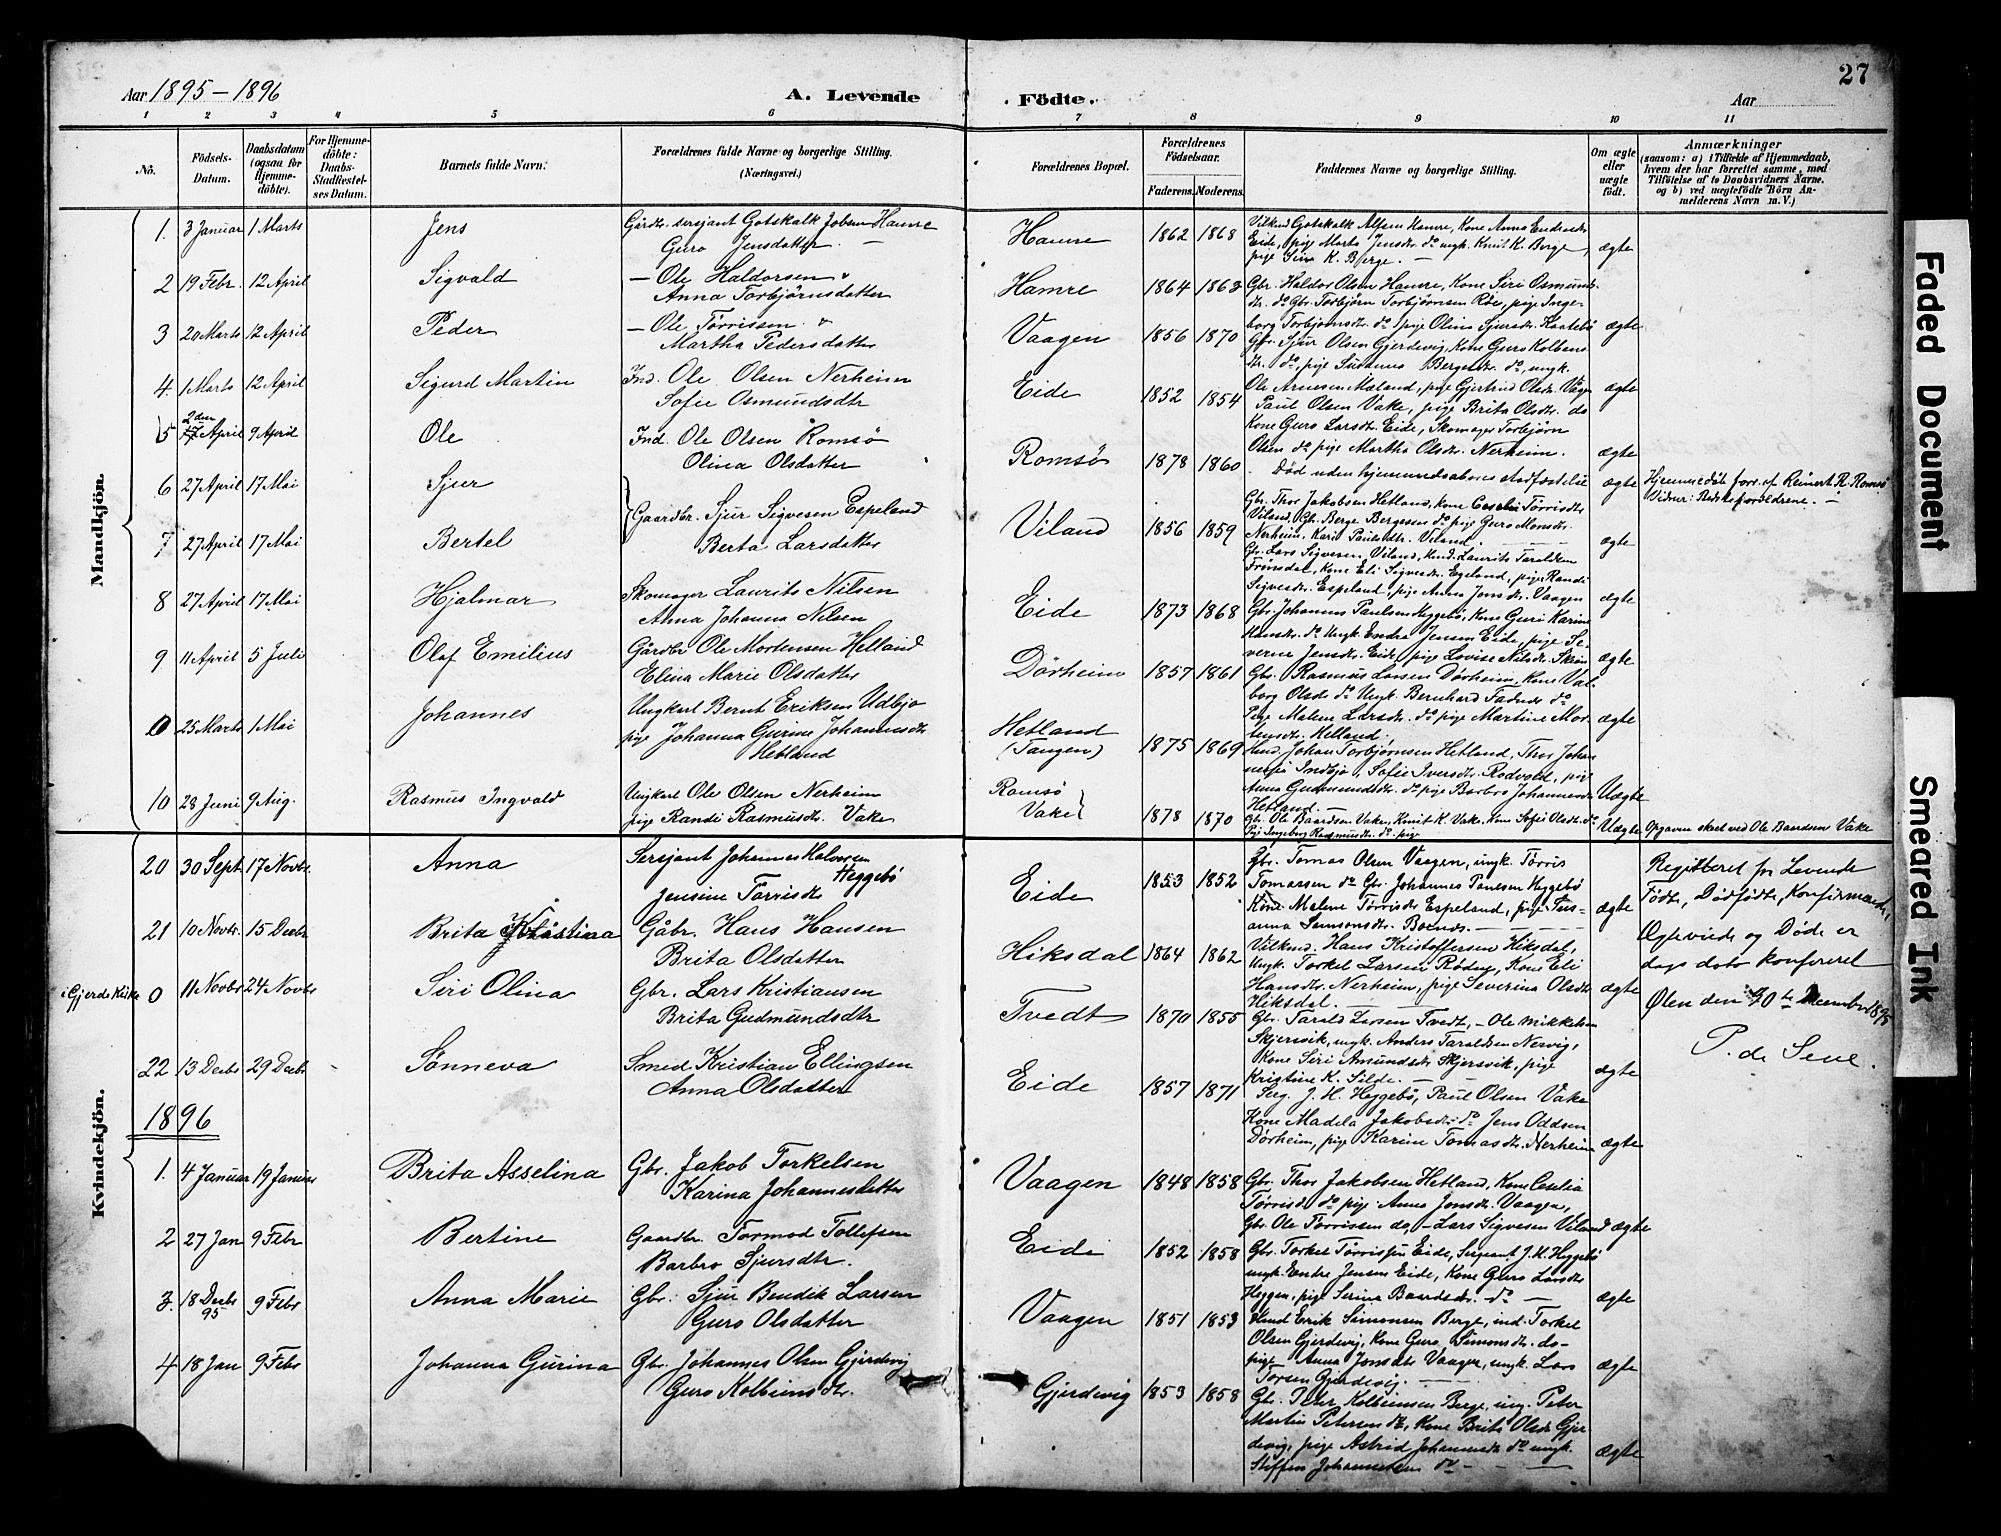 27
Aar 1895-1896
A. Levende
Födte.
Aar
1 2 3 4 5 6 7 8 9 10 11
No.
Födsels-Datum.
Daabsdatum (ogsaa for Hjemme-döbte).
For Hjemme-döbte: Daabs-Stadfæstel-ses Datum.
Barnets fulde Navn.
Forældrenes fulde Navne og borgerlige Stilling.
(Næringsvei.)
Forældrenes Bopæl.
Forældrenes Födselsaar.
Faderens. Moderens.
Faddernes Navne og borgerlige Stilling.
Om ægte eller uægte födt.
Anmærkninger
(saasom: a) i Tilfælde af Hjemmedaab, hvem der har forrettet samme, med Tilföielse af to Daabsvidners Navne. og b) ved uægtefödte Börn An-melderens Navn m. V.)
Mandkjön.
1. 3 Januar 1 Marts Jens Gårdbr. sersjant Gotskalk Jobsen Hamre
Guro Jensdatter Hamre 1862 1868 ægte
2 19 Febr. 12 April Sigvald — Ole Haldorsen
Anna Torbjørnsdatter Hamre 1864 1863
Gbr. Haldor Olsen Hamre, Kone Siri Osmunds-
dtr. do Gbr. Torbjørn Torbjørnsen Røe, pige Inge-
borg Torbjørnsdtr. do pige Olina Sjursdtr. ægte
3 20 Marts 12 April Peder — Ole Tørrissen
Martha Pedersdatter Vaagen 1856 1870
Gbr. Sjur Olsen Gjerdevig, Kone Guro Kolbens-
dtr. do, pige Susanna do, ungk.
4. 1 Marts 12 April Sigurd Martin Ind. Ole Olsen Nerheim
Sofie Osmundsdtr Eide 1852 1854
Ole Arnesen Mæland, pige Gjertrud Olsdtr. Vaagen ægte
Paul Olsen Vake, pige Brita Olsdtr. do
5 2den April 9 April Ole Ind. Ole Olsen Romsø
Olina Olsdatter Romsø 1878 1860
Kone Guro Larsdtr. Eide, Skomager Torbjørn
Olsen do pige Martha Olsdtr. Nerheim. ægte
Død uden hjemmedaabens stadfæstelse
Hjemmedöbt forr. af Reinert R. Romsø
6 27 April 17 Mai Sjur ægte
Gaardbr. Sjur Sigvesen Espeland
Berta Larsdatter Viland 1856 1859
Gbr. Thor Jakobsen Hetland, kone Tørrisdtr
Viland, Gb. Berge Bergesen do pige Guro Monsdtr.
Nerheim, Kari Paulsdtr. Viland
7 27 April 17 Mai Bertel ægte
Gbr. Lars Sigvesen Viland, Laurits Taraldsen
Frønsdal, Kone Eli Sigvesdtr. Egeland, pige Randi
Sigvesdtr. Espeland, pige Anna Jonsdtr. Vaagen
8 27 April 17 Mai Hjalmar Skomager Laurits Nilsen
Anna Johanna Nilsen Eide 1873 1868 ægte
Gbr. Johannes Paulsen Heggebø, Kone Guri Karine
Hansdtr. do Ungk. Endre Jensen Eide, pige Se-
verine Jensdtr. Eide, pige Lovise Nilsdtr.
9 11 April 5 Juli Olaf Emilius Gårdbr Ole Mortensen Hetland
Elina Marie Olsdatter Dörheim 1857 1861 ægte
Gbr. Rasmus Larsen Dörheim, Kone Val-
borg Olsdtr do Ungk. Bernhard do
Pige Malene Larsdtr. do pige Martine Mor-
tensdtr. Hetland.
0 25 Marts 1 Mai Johannes Ungkarl Bernt Eriksen Udbjo
pige Johanna Gurine Johannesdtr
Hetland Hetland
(Tangen) 1875 1869 ægte
Johan Torbjørnsen Hetland, Thor Johan-
nesen Indbjo, Sofie Iversdtr. Rødvold, pige
Anna Gudmundsdtr. do pige Barbro Johannesdtr
Hetland. Uægte
10 28 Juni 9 Aug. Rasmus Ingvald Ungkarl Ole Olsen Nerheim
pige Randi Rasmusdtr. Vake Romsø
Vake 1878 1870
Gbr. Ole Baardsen Vake, Knut K. Vake, Kone Sofie Olsdtr. do
Pige Ingeborg Rasmusdtr. do pige Uægte Opgaven skeet ved Ole Baardsen Vake
Kvindekjön.
20 30 Sept. 17 Novbr. Anna Sersjant Johannes Halvorsen
Heggebö
Jensine Tørrisdtr Eide 1853 1852
Gbr. Tomas Olsen Vaagen, ungk. Tørris
Tomassen do Gbr. Johannes Paulsen Heggebø
Kone Malene Tørrisdtr Espeland, pige Sus-
anna Samsonsdtr. ægte
Registeret for Levende
Födte, Dödfödte, Konfirmerede,
Ægteviede og Døde er
dags dato konfereret
Ølen den 30te December 1895
21 10 Novbr. 15 Decbr Brita Kristina Gåbr. Hans Hansen
Brita Olsdatter Hiksdal 1864 1862
Hans Kristoffersen Hiksdal,
Ungk. Torkel Larsen Rødne, Kone Eli
Hansdtr. Nerheim, pige Severina Olsdtr
Hiksdal. ægte
i Gjerde Kirke 0 11 Novbr 24 Novbr Siri Olina Gbr. Lars Kristiansen
Brita Gudmundsdtr Tvedt 1870 1855
Gbr. Tarald Larsen Tvedt, – Ole Mikkelsen
Skjersvik, ungk. Anders Taraldsen Nesvig,
Kone Siri Amundsdtr Skjersvik, pige
Kristine K. Silde. ægte
22 13 Decbr 29 Decbr Sønneva Smed Kristian Ellingsen
Anna Olsdatter Eide 1857 1871
Serg. J. H. Heggebø, Paul Olsen Vake
Kone Madela Jakobsdtr. do Jens Oddsen
Dørheim, pige Karine Tomasdtr. Nerheim ægte
1896
1. 4 Januar 19 Januar Brita Asselina Gbr. Jakob Torkelsen
Karina Johannesdatter Vaagen 1848 1858
Gbr. Thor Jakobsen Hetland, Kone Ceselia
Tørrisd. do pige Anna Jonsdtr. Vaagen,
Gbr. Ole Tørrissen do, – Lars Sigvesen Viland ægte
2 27 Jan 9 Febr Bertine Gaardbr. Tormod Tollefsen
Barbro Sjursdtr. Eide 1852 1858
Gbr. Torkel Tørrissen Eide, Sergeant J. H. Heggebø
ungk. Endre Jensen Eide, Kone Guro Larsdtr
Heggen, pige Serina Baardsdtr. do ægte
3. 18 Decbr 95 9 Febr Anna Marie Gbr. Sjur Bendik Larsen
Guro Olsdatter Vaagen 1851 1853
Erik Simonsen Berge, ind. Torkel
Olsen Gjerdevig, Kone Guro Simonsdtr. do –
pige Anna Jonsdtr Vaagen, ungk. Lars
Torsen Gjerdevig. ægte
4 18 Jan 9 Febr Johanna Gurina Gbr. Johannes Olsen Gjerdevig
Guro Kolbeinsdtr. Gjerdevig 1853 1858
Gbr. Peter Kolbeinsen Berge, ung. Peter
Martin Petersen do, Kone Brita Olsdtr Gjer-
devig, pige Astrid Johannesdtr do ungk.
Steffen Johannessen do ægte
Faded Document
Smeared Ink